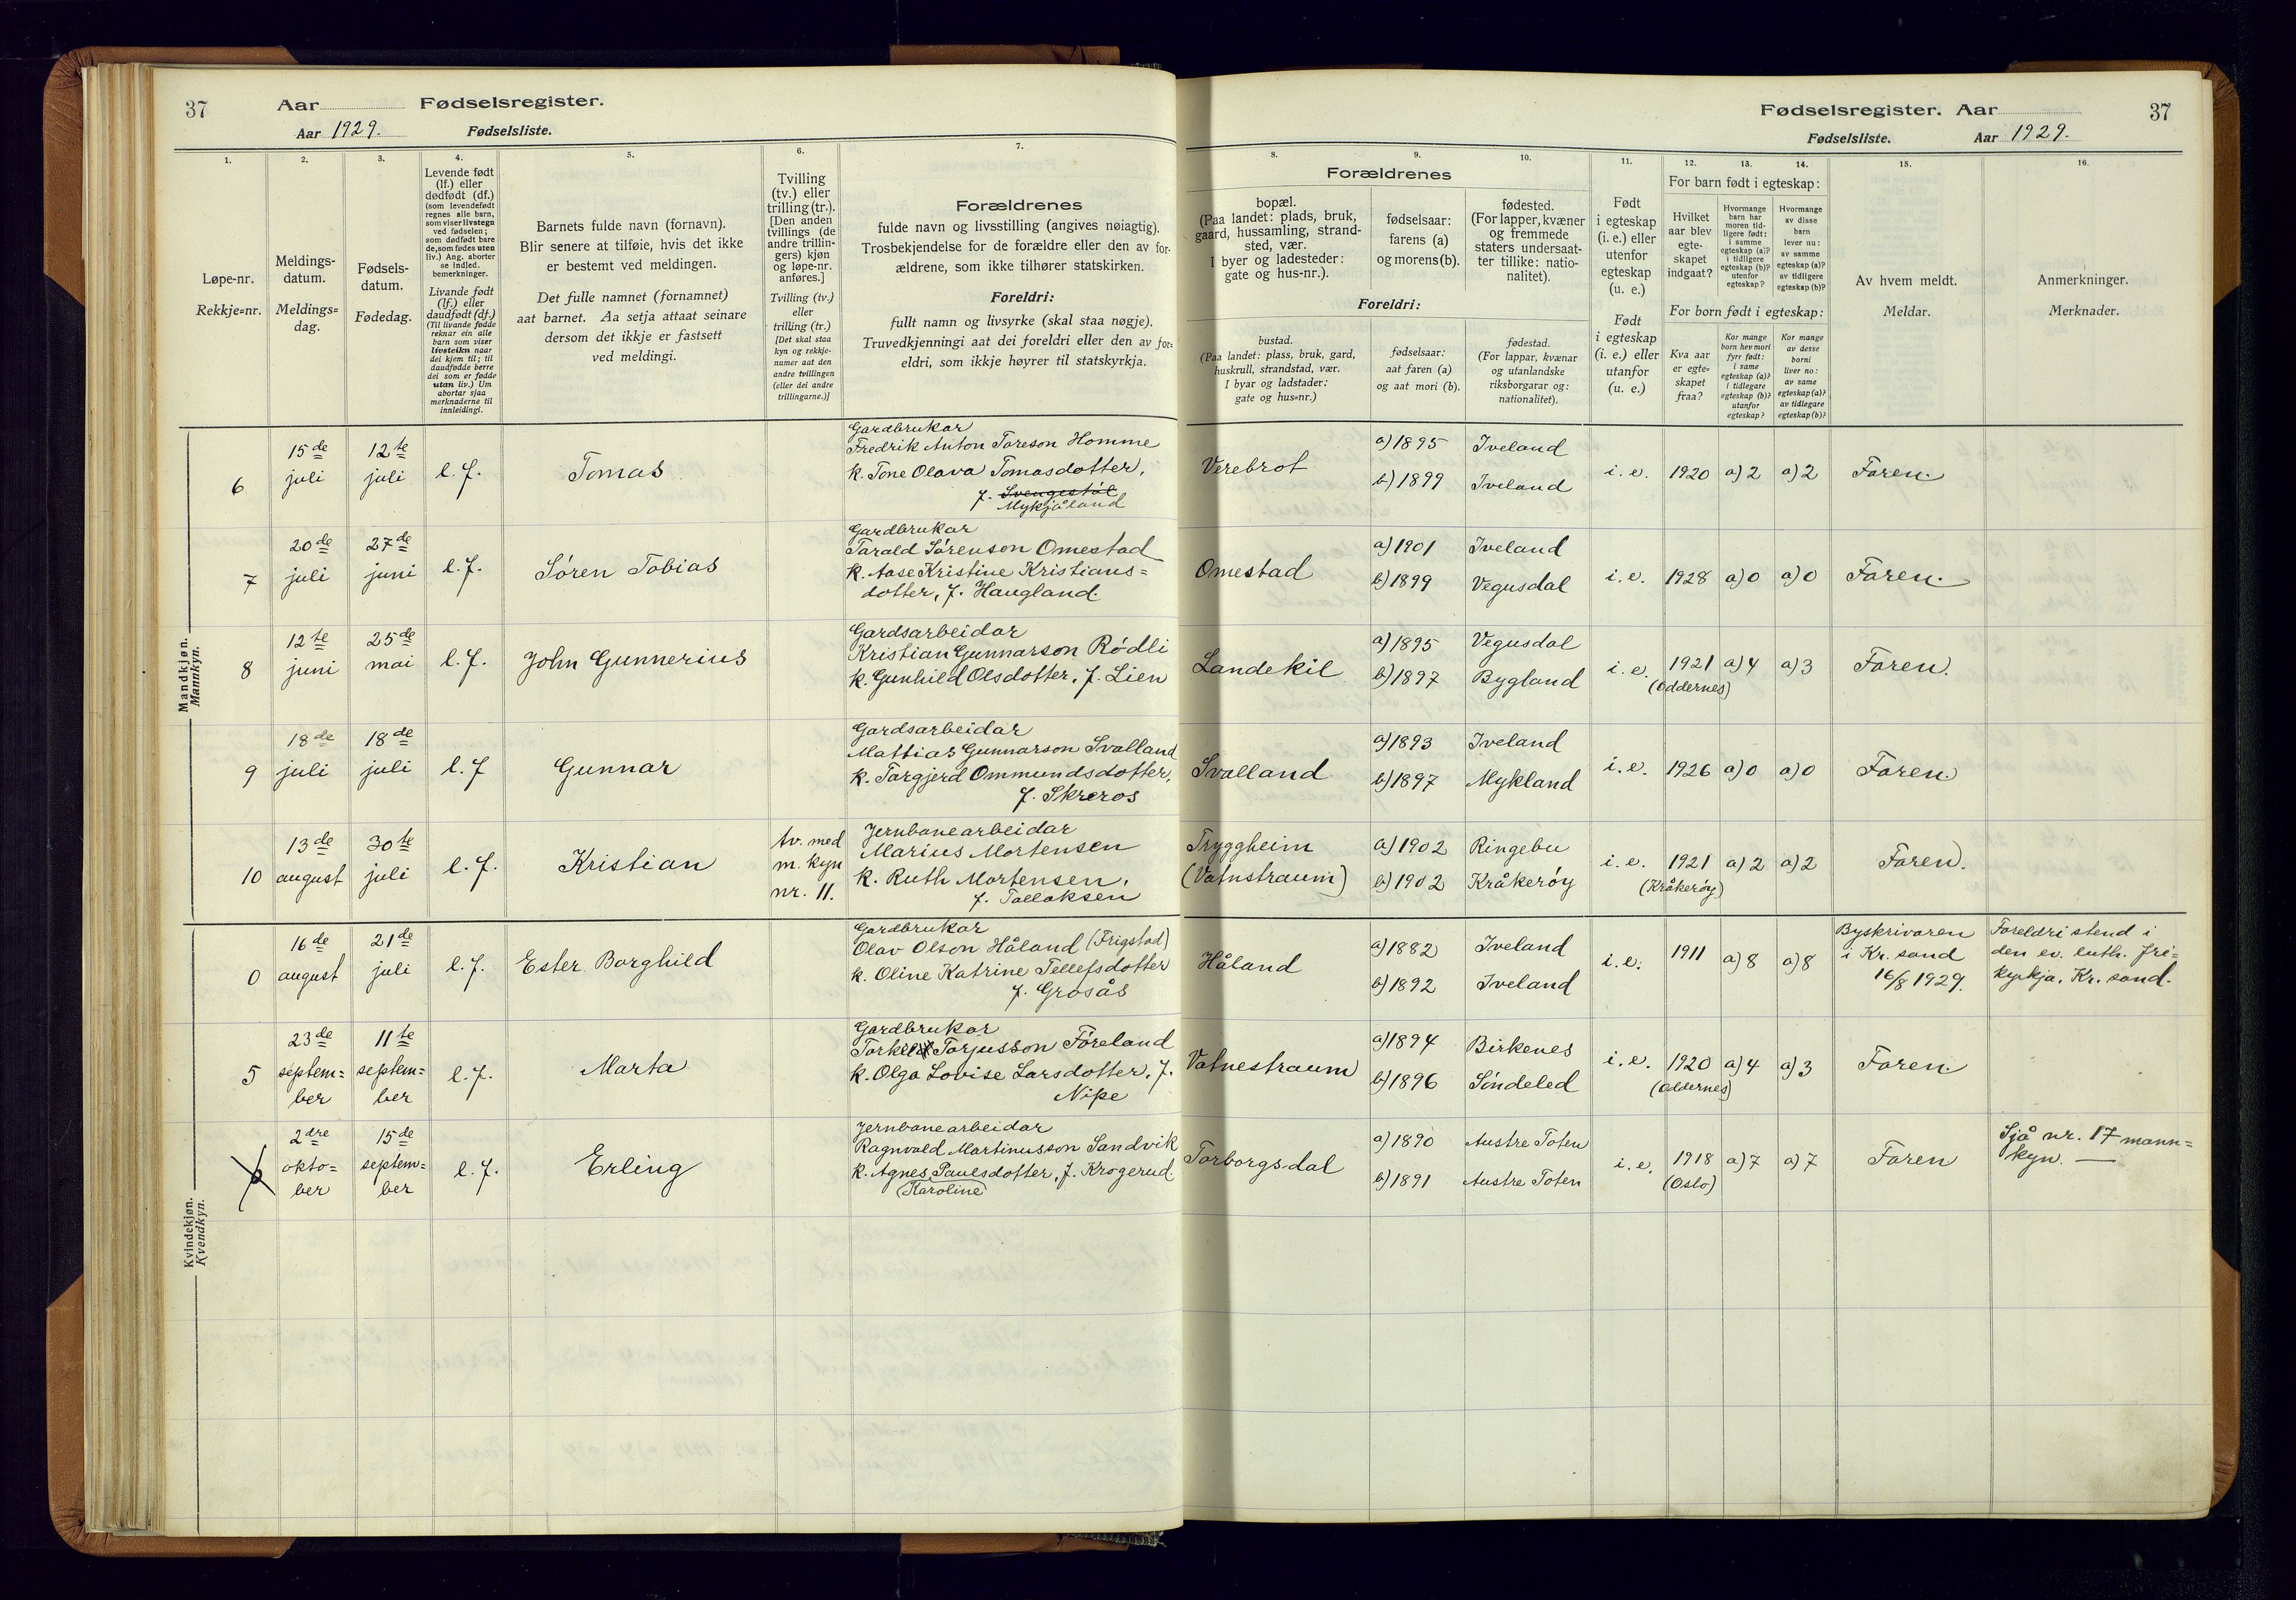 37
Aar Fødselsregister.
Aar 1929. Fødselsliste.
Fødselsregister. Aar
37
Fødselsliste. Aar 1929.
1.
Løpe-nr.
Rekkje=nr.
2.
Meldings-
datum.
Meldings=
dag.
3.
Fødsels-
datum.
Fødedag.
4.
Levende født
(lf.) eller
dødfødt (df.)
(som levendefødt
regnes alle barn,
som viser livstegn
ved fødselen;
som dødfødt bare
de, som fødes uten
liv.) Ang. aborter
se indled.
bemerkninger.
Livande født
(lf.) eller
daudfødt (df.)
(Til livande fødde
reknar ein alle
barn som viser
livsteikn naar
dei kjem til; til
daudfødde berre
dei som er fødde
utan liv.) Um
abortar sjaa
merknaderne til
innleidingi.
5.
Barnets fulde navn (fornavn).
Blir senere at tilføie, hvis det ikke
er bestemt ved meldingen.
Det fulle namnet (fornamnet)
aat barnet. Aa setja attaat seinare
dersom det ikkje er fastsett
ved meldingi.
6.
Tvilling
(tv.) eller
trilling (tr.).
[Den anden
tvillings (de
andre trillin-
gers) kjøn
og løpe-nr.
anføres.]
Tvilling (tv.)
eller
trilling (tr.)
[Det skal staa
kyn og rekkje-
numer aat den
andre tvillingen
(eller dei andre
trillingarne.)]
7.
Forældrenes
fulde navn og livsstilling (angives nøiagtig).
Trosbekjendelse for de forældre eller den av for-
ældrene, som ikke tilhører statskirken.
Foreldri:
fullt namn og livsyrke (skal staa nøgje).
Truvedkjenningi aat dei foreldri eller den av for=
eldri, som ikkje høyrer til statskyrkja.
Forældrenes
8.
bopæl.
(Paa landet: plads, bruk,
gaard, hussamling, strand-
sted, vær.
I byer og ladesteder:
gate og hus-nr.).
9.
fødselsaar:
farens (a)
og morens (b).
10.
fødested.
(For lapper, kvæner
og fremmede
staters undersaat-
ter tillike: natio-
nalitet).
Foreldri:
bustad.
(Paa landet: plass, bruk, gard,
huskrull, strandstad, vær.
I byar og ladstader:
gate og hus=nr.)
fødselsaar:
aat faren (a)
og aat mori (b).
fødestad.
(For lappar, kvænar
og utanlandske
riksborgarar og:
nationalitet).
11.
Født
i egteskap
(i. e.) eller
utenfor
egteskap
(u. e.)
Født
i egteskap
(i. e.) eller
utanfor
(u. e.)
12. 13. 14.
For barn født i egteskap:
Hvilket
aar blev
egte-
skapet
indgaat?
Hvormange
barn har
moren tid-
ligere født:
i samme
egteskap (a)?
i tidligere
egteskap (b)?
utenfor
egteskap?
Hvormange
av disse
barn
lever nu:
av samme
egteskap (a)?
av tidligere
egteskap (b)?
For born født i egteskap:
Kva aar
er egte=
skapet
fraa?
Kor mange
born hev mori
fyrr født:
i same
egteskap (a)?
i tidlegare
egteskap (b)?
utanfor
egteskap?
Kor mange
av desse
borni
liver no:
av same
egteskap (a)?
av tidlegare
egteskap (b)?
15.
Av hvem meldt.
Meldar.
16.
Anmerkninger.
Merknader.
Mandkjøn.
Mannkyn.
6
15de
juli
12te
juli
l. f.
Tomas
Gardbrukar
Fredrik Anton Tareson Homme
k. Tone Olava Tomasdotter,
f. Svengestøl
Mykjåland
Verebrot
a) 1895
b) 1899
Iveland
Iveland
i. e.
1920
a) 2
a) 2
Faren.
7
20de
juli
27de
juni
l. f.
Søren Tobias
Gardbrukar
Tarald Sørenson Omestad
k. Aase Kristine Kristians=
dotter, f. Haugland.
Omestad
a) 1901
b) 1899
Iveland
Vegusdal
i. e.
1928
a) 0
a) 0
Faren.
8
12te
juni
25de
mai
l. f.
John Gunnerius
Gardsarbeidar
Kristian Gunnarson Rødli
k. Gunhild Olsdotter, f. Lien
Landekil
a) 1895
b) 1897
Vegusdal
Bygland
i. e.
1921
(Oddernes)
a) 4
a) 3
Faren.
9
18de
juli
18de
juli
l. f
Gunnar
Gardsarbeidar
Mattias Gunnarson Svalland
k. Targjerd Ommundsdotter,
f. Skreros
Svalland
a) 1893
b) 1897
Iveland
Mykland
i. e.
1926
a) 0
a) 0
Faren.
10
13de
august
30te
juli
l. f.
Kristian
tv. med
m. kyn
nr. 11.
Jernbanearbeidar
Marius Mortensen
k. Ruth Mortensen,
f. Tallaksen
Tryggheim
(Vatnstraum)
a) 1902
b) 1902
Ringebu
Kråkerøy
i. e.
1921
(Kråkerøy)
a) 2
a) 2
Faren.
Kvindekjøn.
Kvendkyn.
0
16de
august
21de
juli
l. f.
Ester Borghild
Gardbrukar
Olav Olson Håland (Frigstad)
k. Oline Katrine Tellefsdotter
f. Grosås
Håland
a) 1882
b) 1892
Iveland
Iveland
i. e.
1911
a) 8
a) 8
Byskrivaren
i Kr. sand
16/8 1929.
Foreldri stend i
den ev. luth. fri=
kyrkja. Kr. sand.
5
23de
septem=
ber
11te
septem=
ber
l. f.
Marta
Gardbrukar
Torkel Torjusson Føreland
k. Olga Lovise Larsdotter, f.
Nipe
Vatnestraum
a) 1894
b) 1896
Birkenes
Søndeled
i. e.
1920
(Oddernes)
a) 4
a) 3
Faren.
6
2dre
okto=
ber
15de
septem=
ber
l. f.
Erling
Jernbanearbeidar
Ragnvald Martinusson Sandvik
k. Agnes Paulsdotter, f. Krogerud.
(Karoline)
Torborgsdal
a) 1890
b) 1891
Austre Toten
Austre Toten
i. e.
1918
(Oslo)
a) 7
a) 7
Faren
Sjå nr. 17 mann=
kyn.